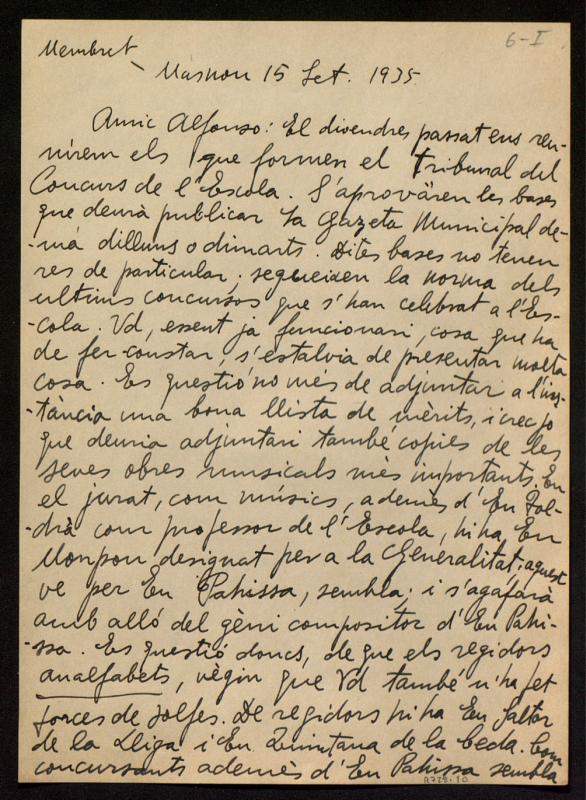 6-I
Membret
Masnou 15 Set. 1935
Amic Alfonso: El divendres passat ens reu-
nírem els que formen el Tribunal del
Concurs de l'Escola. S'aprovàren les bases
que deurà publicar la Gazeta Municipal de-
-mà dilluns o dimarts. Dites bases no tenen
res de particular; segueixen la norma dels
ultims concursos que s'han celebrat a l'Es-
-cola. Vd, essent ja funcionari, cosa que ha
de fer constar, s'estalvia de presentar molta
cosa. Es questió no mès de adjuntar a l'ins-
-tància una bona llista de mèrits, i crec jo
que deuria adjuntari també copies de les
seves obres musicals mès importants. En
el jurat, com músics, ademès d'En Fol-
-drà com professor de l'Escola, hi ha En
Monpou designat per a la Generalitat; aquest
ve per En Pahissa, sembla; i s'agafarà
amb alló del gèni compositor d'En Pahi-
-ssa. Es questió doncs, de que els regidors
analfabets, vègin que Vd també n'ha fet
forces de solfes. De regidors hi ha En Saltor
de la Lliga i En Quintana de la Ceda. Com
concursants ademès d'En Pahissa sembla